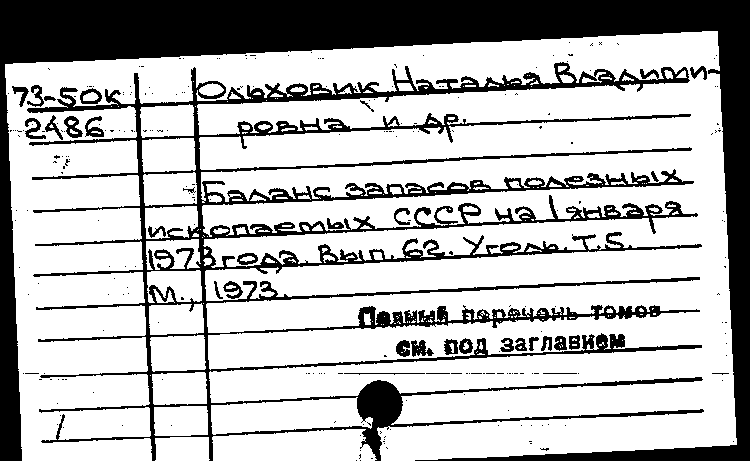 73-50к Ольховик, Наталья Владими-
2486 ровна и др.
Баланс запасов полезных
ископаемых СССР на 1 января
1973 года. Вып. 62. Уголь. Т. 5.
М., 1973.
Полный перечень томов
см. под заглавием